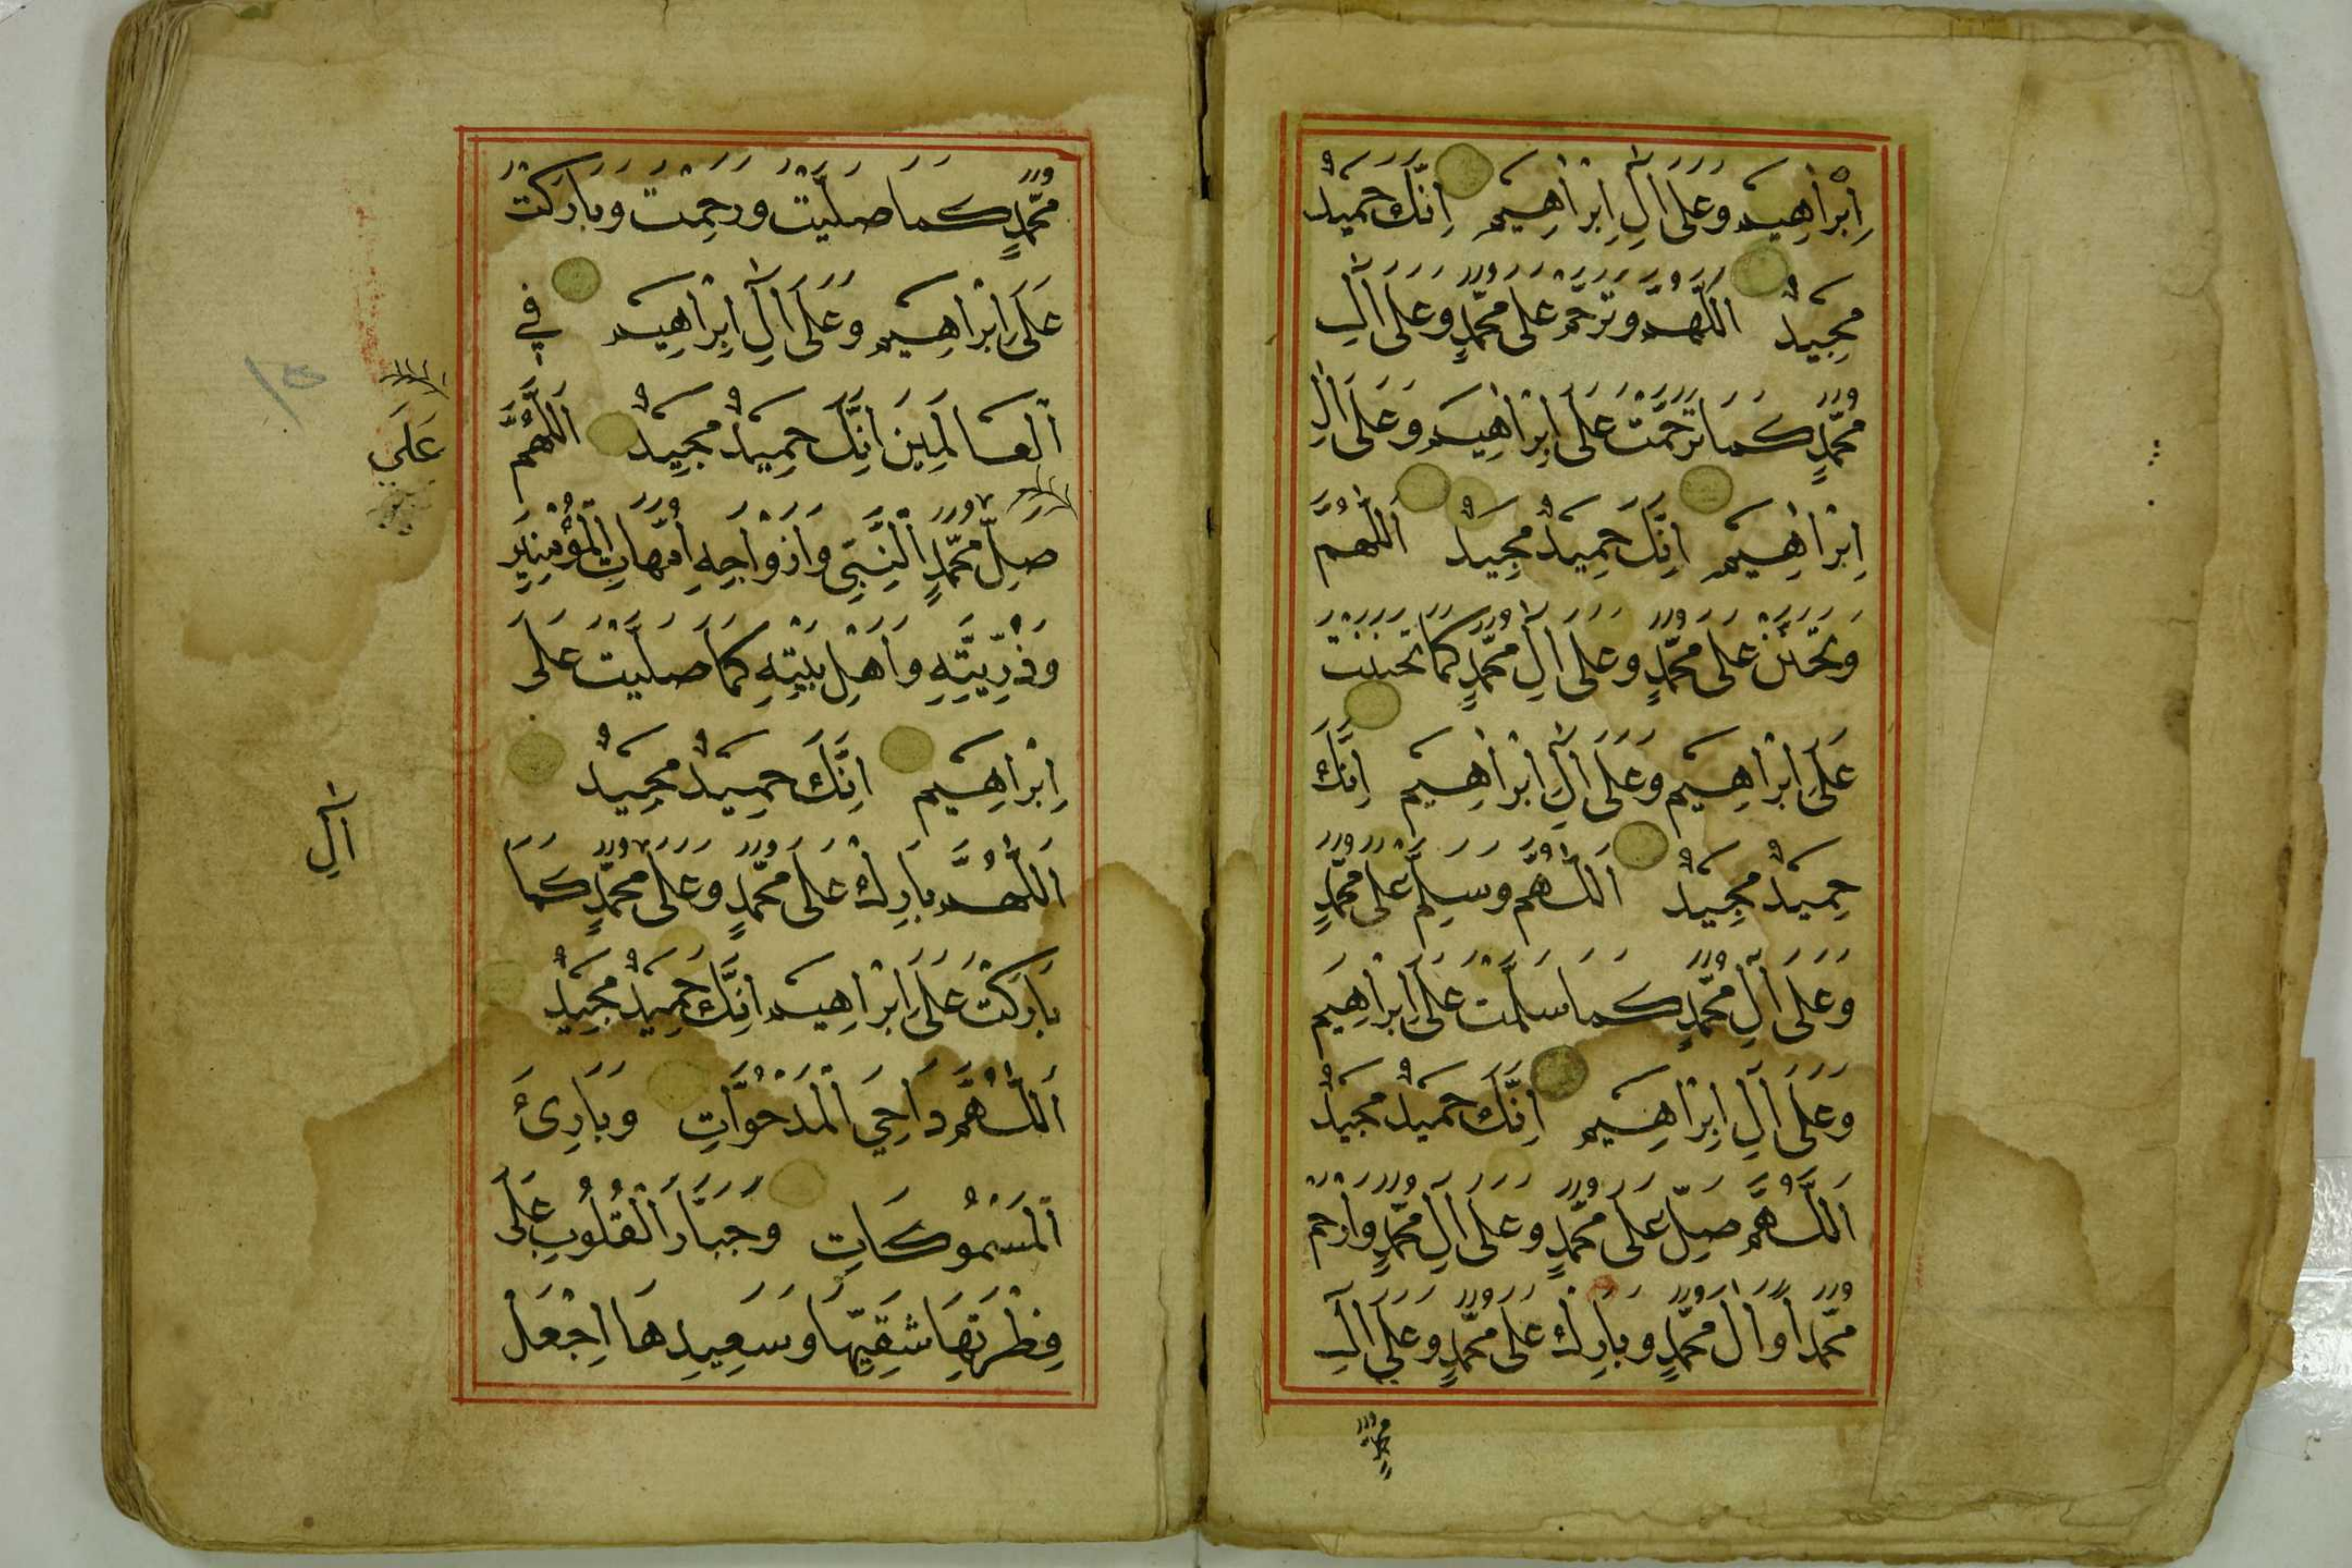 اِبْرَاهِيمَ وَعَلَى اٰلِ اِبْرَاهِيمَ اِنَّكَ حَمِيدٌ
مَجِيدٌ اَللّٰهُمَّ وَتَرَحَّمْ عَلَى مُحَمَّدٍ وَعَلَى اٰلِ
مُحَمَّدٍ كَمَا تَرَحَّمْتَ عَلَى اِبْرَاهِيمَ وَعَلَى اٰلِ
اِبْرَاهِيمَ اِنَّكَ حَمِيدٌ مَجِيدٌ اَللّٰهُمَّ
وَتَحَنَّنْ عَلَى مُحَمَّدٍ وَعَلَى اٰلِ مُحَمَّدٍ كَمَا تَحَنَّنْتَ
عَلَى اِبْرَاهِيمَ وَعَلَى اٰلِ اِبْرَاهِيمَ اِنَّكَ
حَمِيدٌ مَجِيدٌ اَللّٰهُمَّ وَسَلِّمْ عَلَى مُحَمَّدٍ
وَعَلَى اٰلِ مُحَمَّدٍ كَمَا سَلَّمْتَ عَلَى اِبْرَاهِيمَ
وَعَلَى اٰلِ اِبْرَاهِيمَ اِنَّكَ حَمِيدٌ مَجِيدٌ
اَللّٰهُمَّ صَلِّ عَلَى مُحَمَّدٍ وَعَلَى اٰلِ مُحَمَّدٍ وَارْحَمْ
مُحَمَّدًا وَاٰلَ مُحَمَّدٍ وَبَارِكْ عَلَى مُحَمَّدٍ وَعَلَى اٰلِ
مُحَمَّدٍ
مُحَمَّدٍ كَمَا صَلَّيْتَ وَرَحِمْتَ وَبَارَكْتَ
عَلَى اِبْرَاهِيمَ وَعَلَى اٰلِ اِبْرَاهِيمَ فِي
اَلْعَالَمِينَ اِنَّكَ حَمِيدٌ مَجِيدٌ اَللّٰهُمَّ
صَلِّ مُحَمَّدٍ اَلنَّبِيِّ وَاَزْوَاجِهِ اُمَّهَاتِ الْمُؤْمِنِينَ
عَلَى
وَذُرِّيَّتِهِ وَاَهْلِ بَيْتِهِ كَمَا صَلَّيْتَ عَلَى
اِبْرَاهِيمَ اِنَّكَ حَمِيدٌ مَجِيدٌ
اَللّٰهُمَّ بَارِكْ عَلَى مُحَمَّدٍ وَعَلَى مُحَمَّدٍ كَمَا
اٰلِ
بَارَكْتَ عَلَى اِبْرَاهِيمَ اِنَّكَ حَمِيدٌ مَجِيدٌ
اَللّٰهُمَّ دَاحِيَ الْمَدْحُوَّاتِ وَبَارِئَ
اَلْمَسْمُوكَاتِ وَجَبَّارَ الْقُلُوبِ عَلَى
فِطْرَتِهَا شَقِيِّهَا وَسَعِيدِهَا اِجْعَلْ